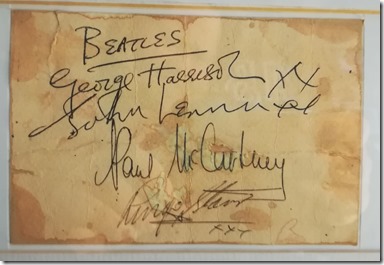 BEATLES
George Harrison xx
John Lennon xx
Paul McCartney
Ringo Starr
xxx